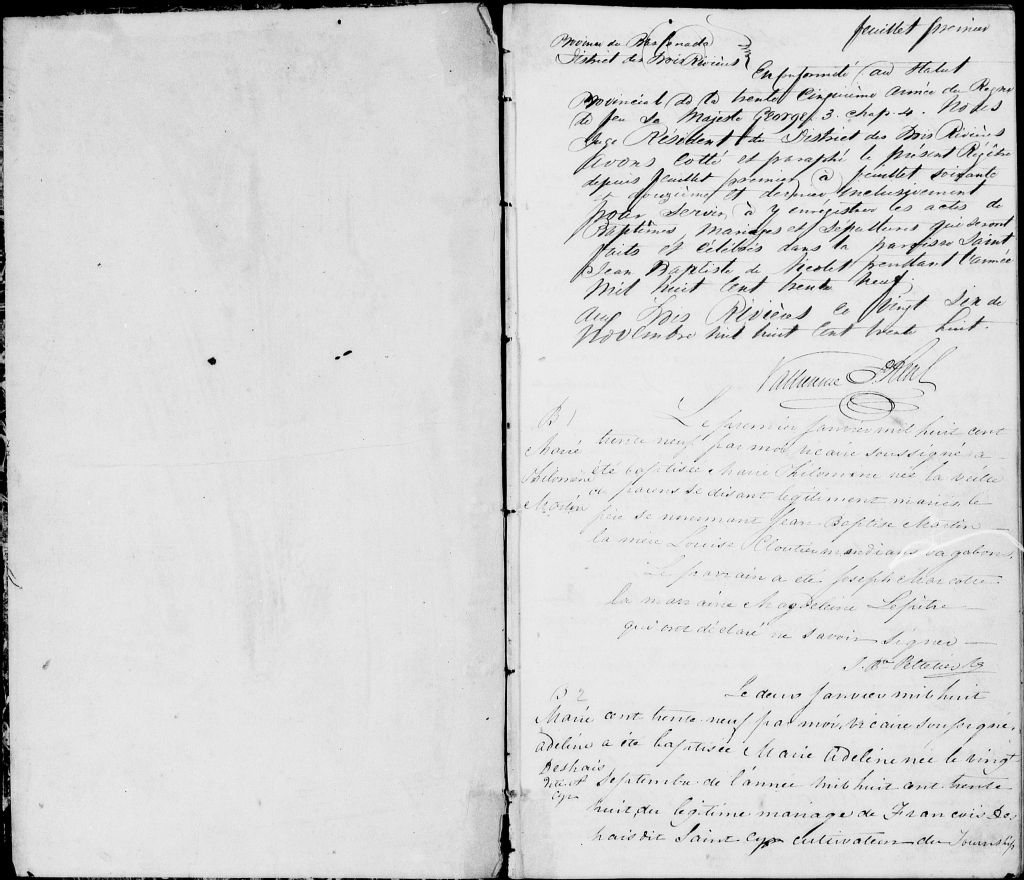 feuillet premier
Province du Bas Canada
District des Trois Rivières
En conformité au Statut
Provincial de la trente cinquième année du Regne
de feu Sa Majesté George 3. chap. 4. Nous
Juge Résident du District des Trois Rivières
avons cotté et paraphé le présent Régître
depuis feuillet premier à feuillet soixante
et douzième et dernier inclusivement
pour servir à y enrégistrer les actes de
Baptêmes, mariages et sépultures qui seront
faits et célébrés dans la paroisse Saint
Jean Baptiste de Nicolet pendant l'année
mil huit cent trente neuf
Aux Trois Rivières ce vingt Six de
Novembre mil huit cent trente huit.
B 1
Marie
Philomène
Martin
Le premier janvier mil huit cent
trente neuf par moi vicaire soussigné a
été baptisée Marie Philomene née la veille
de parens se disant légitiment mariés le
père se nommant Jean Baptise Martin
la mère Louise Cloutier mendians vagabons.
Le parrain a été Joseph Marcotte
la marraine Magdeleine Lepître
qui ont déclaré ne savoir signer
J. Bte Pelletier
B 2
Marie
adeline
Deshais
dit St
Cyr
Le deux janvier mil huit
cent trente neuf par moi, vicaire soussigné,
a été baptisée Marie Adeline née le vingt
Septembre de l'année mil huit cent trente
huit du légitime mariage de François Des
hais dit Saint Cyr cultivateur du Township